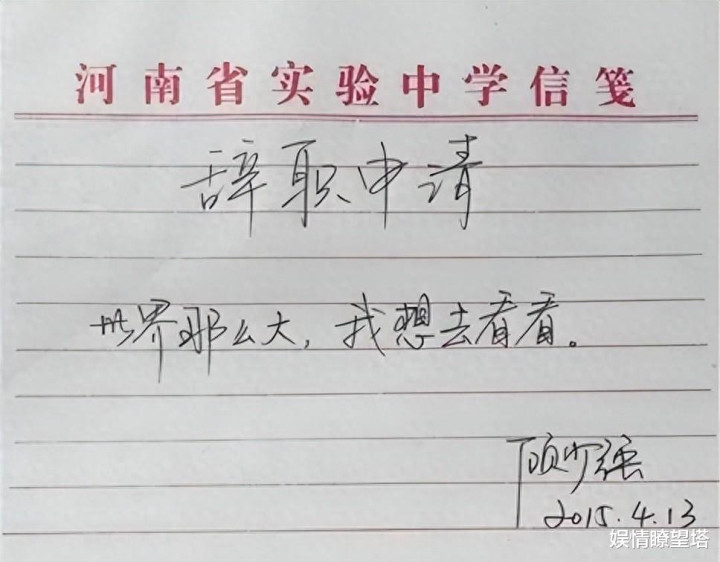 河南省实验中学信笺
辞职申请
世界那么大，我想去看看。
顾少强
2015.4.13
娱情瞭望塔